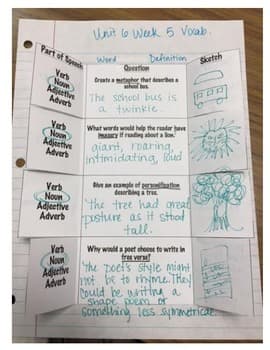 Unit 6 Week 5 Vocab.
Part of Speech
Word
Definition
Sketch
Verb
Noun
Adjective
Adverb
Question
Create a metaphor that describes a school bus.
The school bus is
a twinkie.
Verb
Noun
Adjective
Adverb
What words would help the reader have
imagery if reading about a lion?
giant, roaring,
intimidating, loud
Verb
Noun
Adjective
Adverb
Give an example of personification
describing a tree.
The tree had great
posture as it stood
tall.
Verb
Noun
Adjective
Adverb
Why would a poet choose to write in
free verse?
The poet's style might
not be to rhyme. They
could be writing a
shape poem or
something less symmetrical